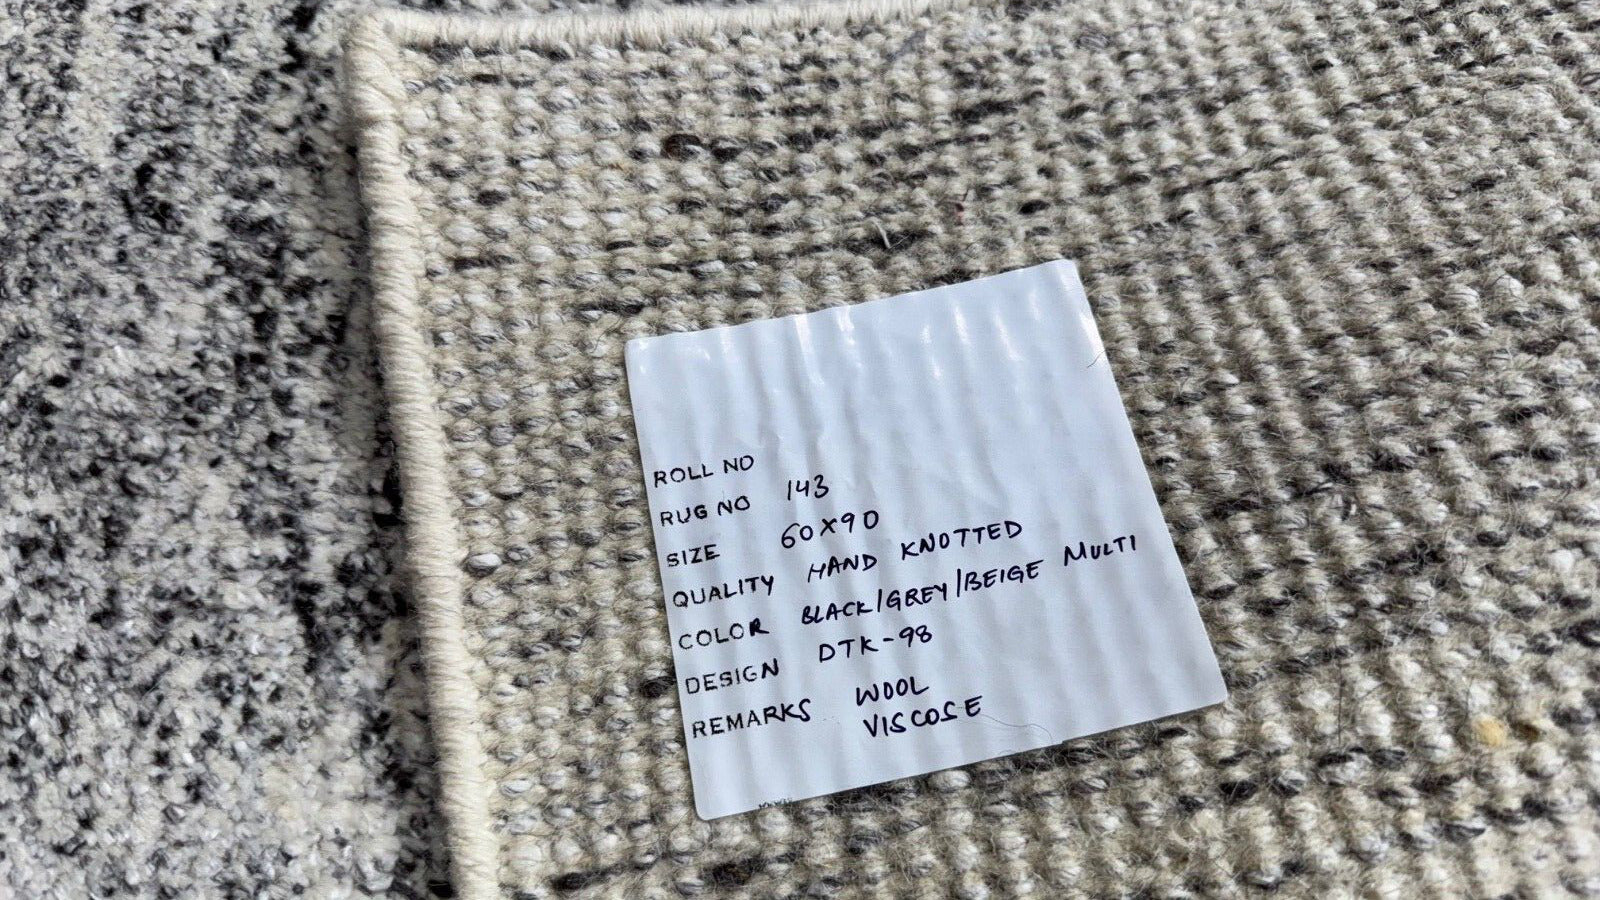 ROLL NO
RUG NO 143
SIZE 60X90
QUALITY HAND KNOTTED
COLOR BLACK/GREY/BEIGE MULTI
DESIGN DTK-98
REMARKS WOOL
VISCOSE